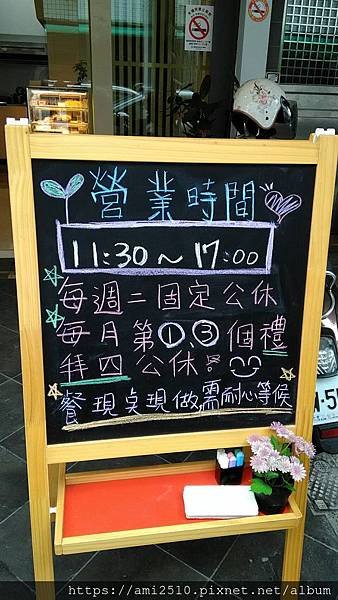 營業時間
11:30～17:00
每週二固定公休
每月第①、③個禮
拜四公休!
餐現桌現做需耐心等候
https://ami2510.pixnet.net/album